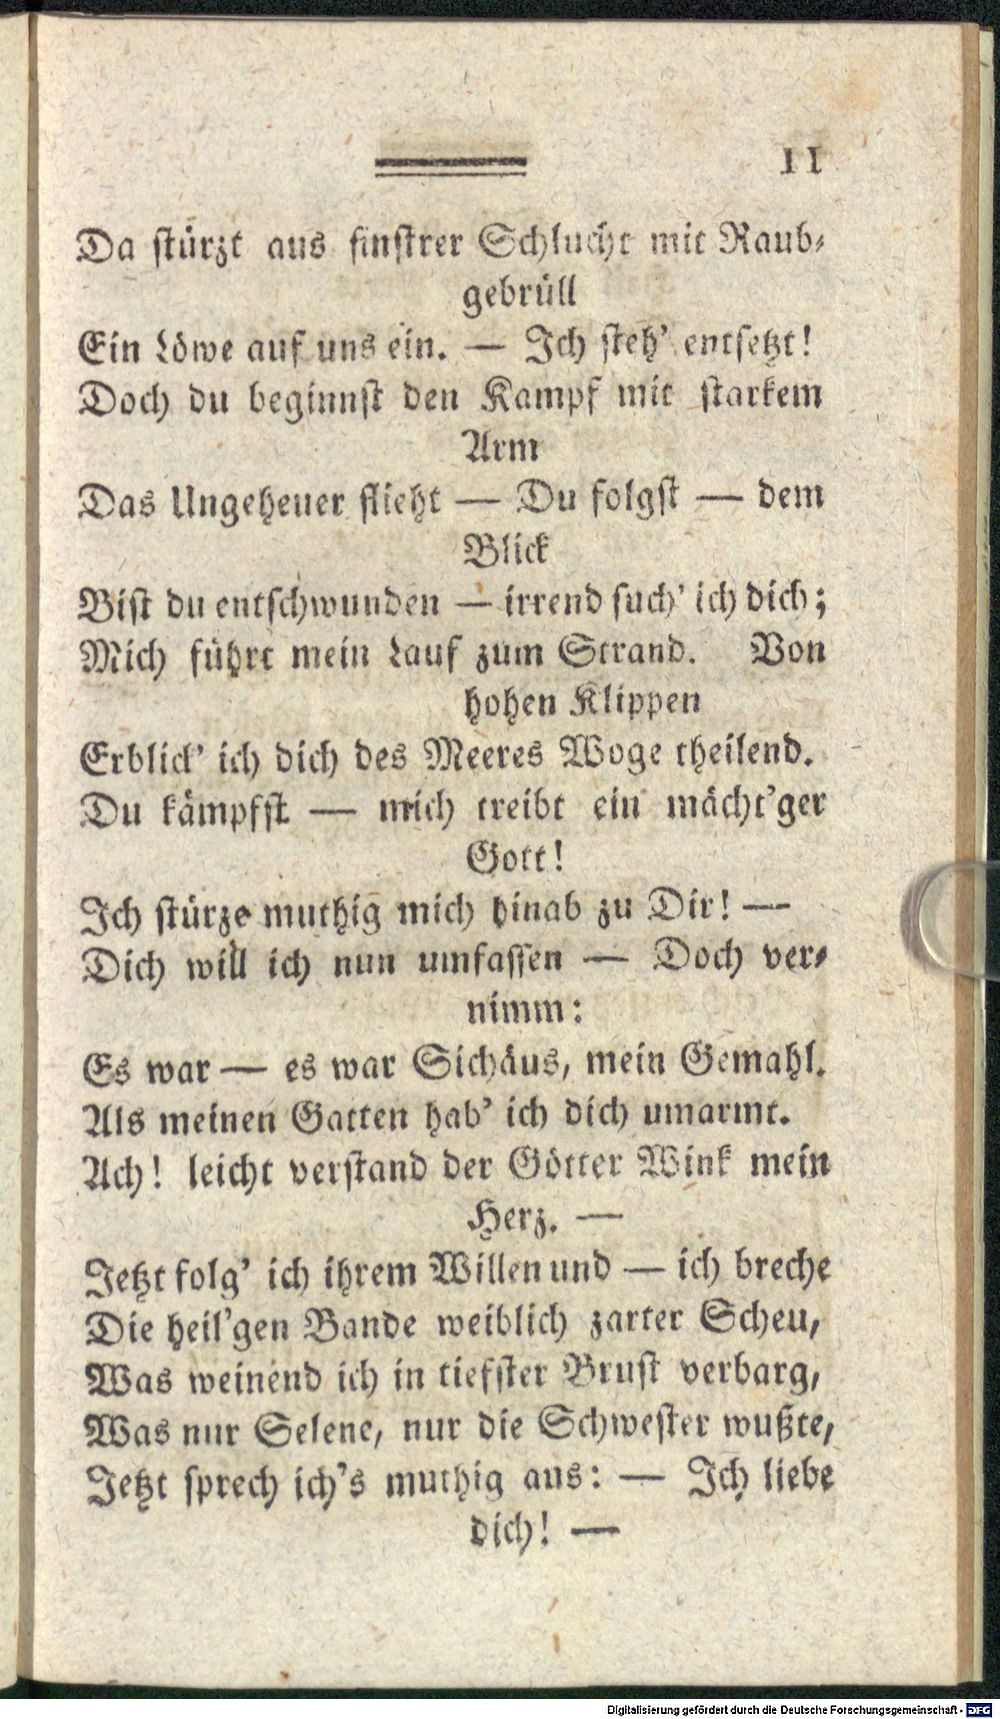 11
Da stürzt aus finstrer Schlucht mit Raub-
gebrüll
Ein Löwe auf uns ein. — Ich steh' entsetzt!
Doch du beginnst den Kampf mit starkem
Arm
Das Ungeheuer flieht — Du folgst — dem
Blick
Bist du entschwunden — irrend such' ich dich;
Mich führt mein Lauf zum Strand. Von
hohen Klippen
Erblick' ich dich des Meeres Woge theilend.
Du kämpfst — mich treibt ein mächt'ger
Gott!
Ich stürze muthig mich hinab zu Dir! —
Dich will ich nun umfassen — Doch ver-
nimm:
Es war — es war Sichäus, mein Gemahl.
Als meinen Gatten hab' ich dich umarmt.
Ach! leicht verstand der Götter Wink mein
Herz. —
Jetzt folg' ich ihrem Willen und — ich breche
Die heil'gen Bande weiblich zarter Scheu,
Was weinend ich in tiefster Brust verbarg,
Was nur Selene, nur die Schwester wußte,
Jetzt sprech ich's muthig aus: — Ich liebe
dich! —
Digitalisierung gefördert durch die Deutsche Forschungsgemeinschaft - DFG